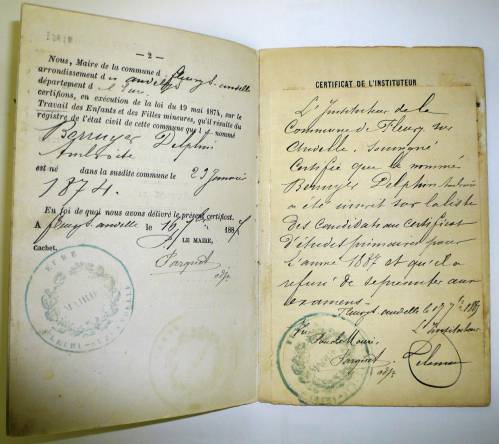 — 2 —
Nous, Maire de la commune d fleury s. andelle
arrondissement d es andelys
département d l'Eure
certifions, en exécution de la loi du 19 mai 1874, sur le
Travail des Enfants et des Filles mineures, qu'il résulte du
registre de l'état civil de cette commune que l nommé
Berruyer Delphin
Ambroise
est né dans la susdite commune le 23 Janvier
1874.
En foi de quoi nous avons délivré le présent certificat.
A fleury s. andelle le 16 188
LE MAIRE,
Cachet.
EURE
MAIRIE
CERTIFICAT DE L'INSTITUTEUR
L'Instituteur de la
Commune de Fleury sur
Andelle, soussigné
Certifie que le nommé
Berruyer Delphin Ambroise
a été inscrit sur la liste
des Candidats au Certificat
d'études primaires pour
l'année 1887 et qu'il a
refusé de se présenter aux
examens.
Fleury s. andelle le 17 1887
L'Instituteur
Vu